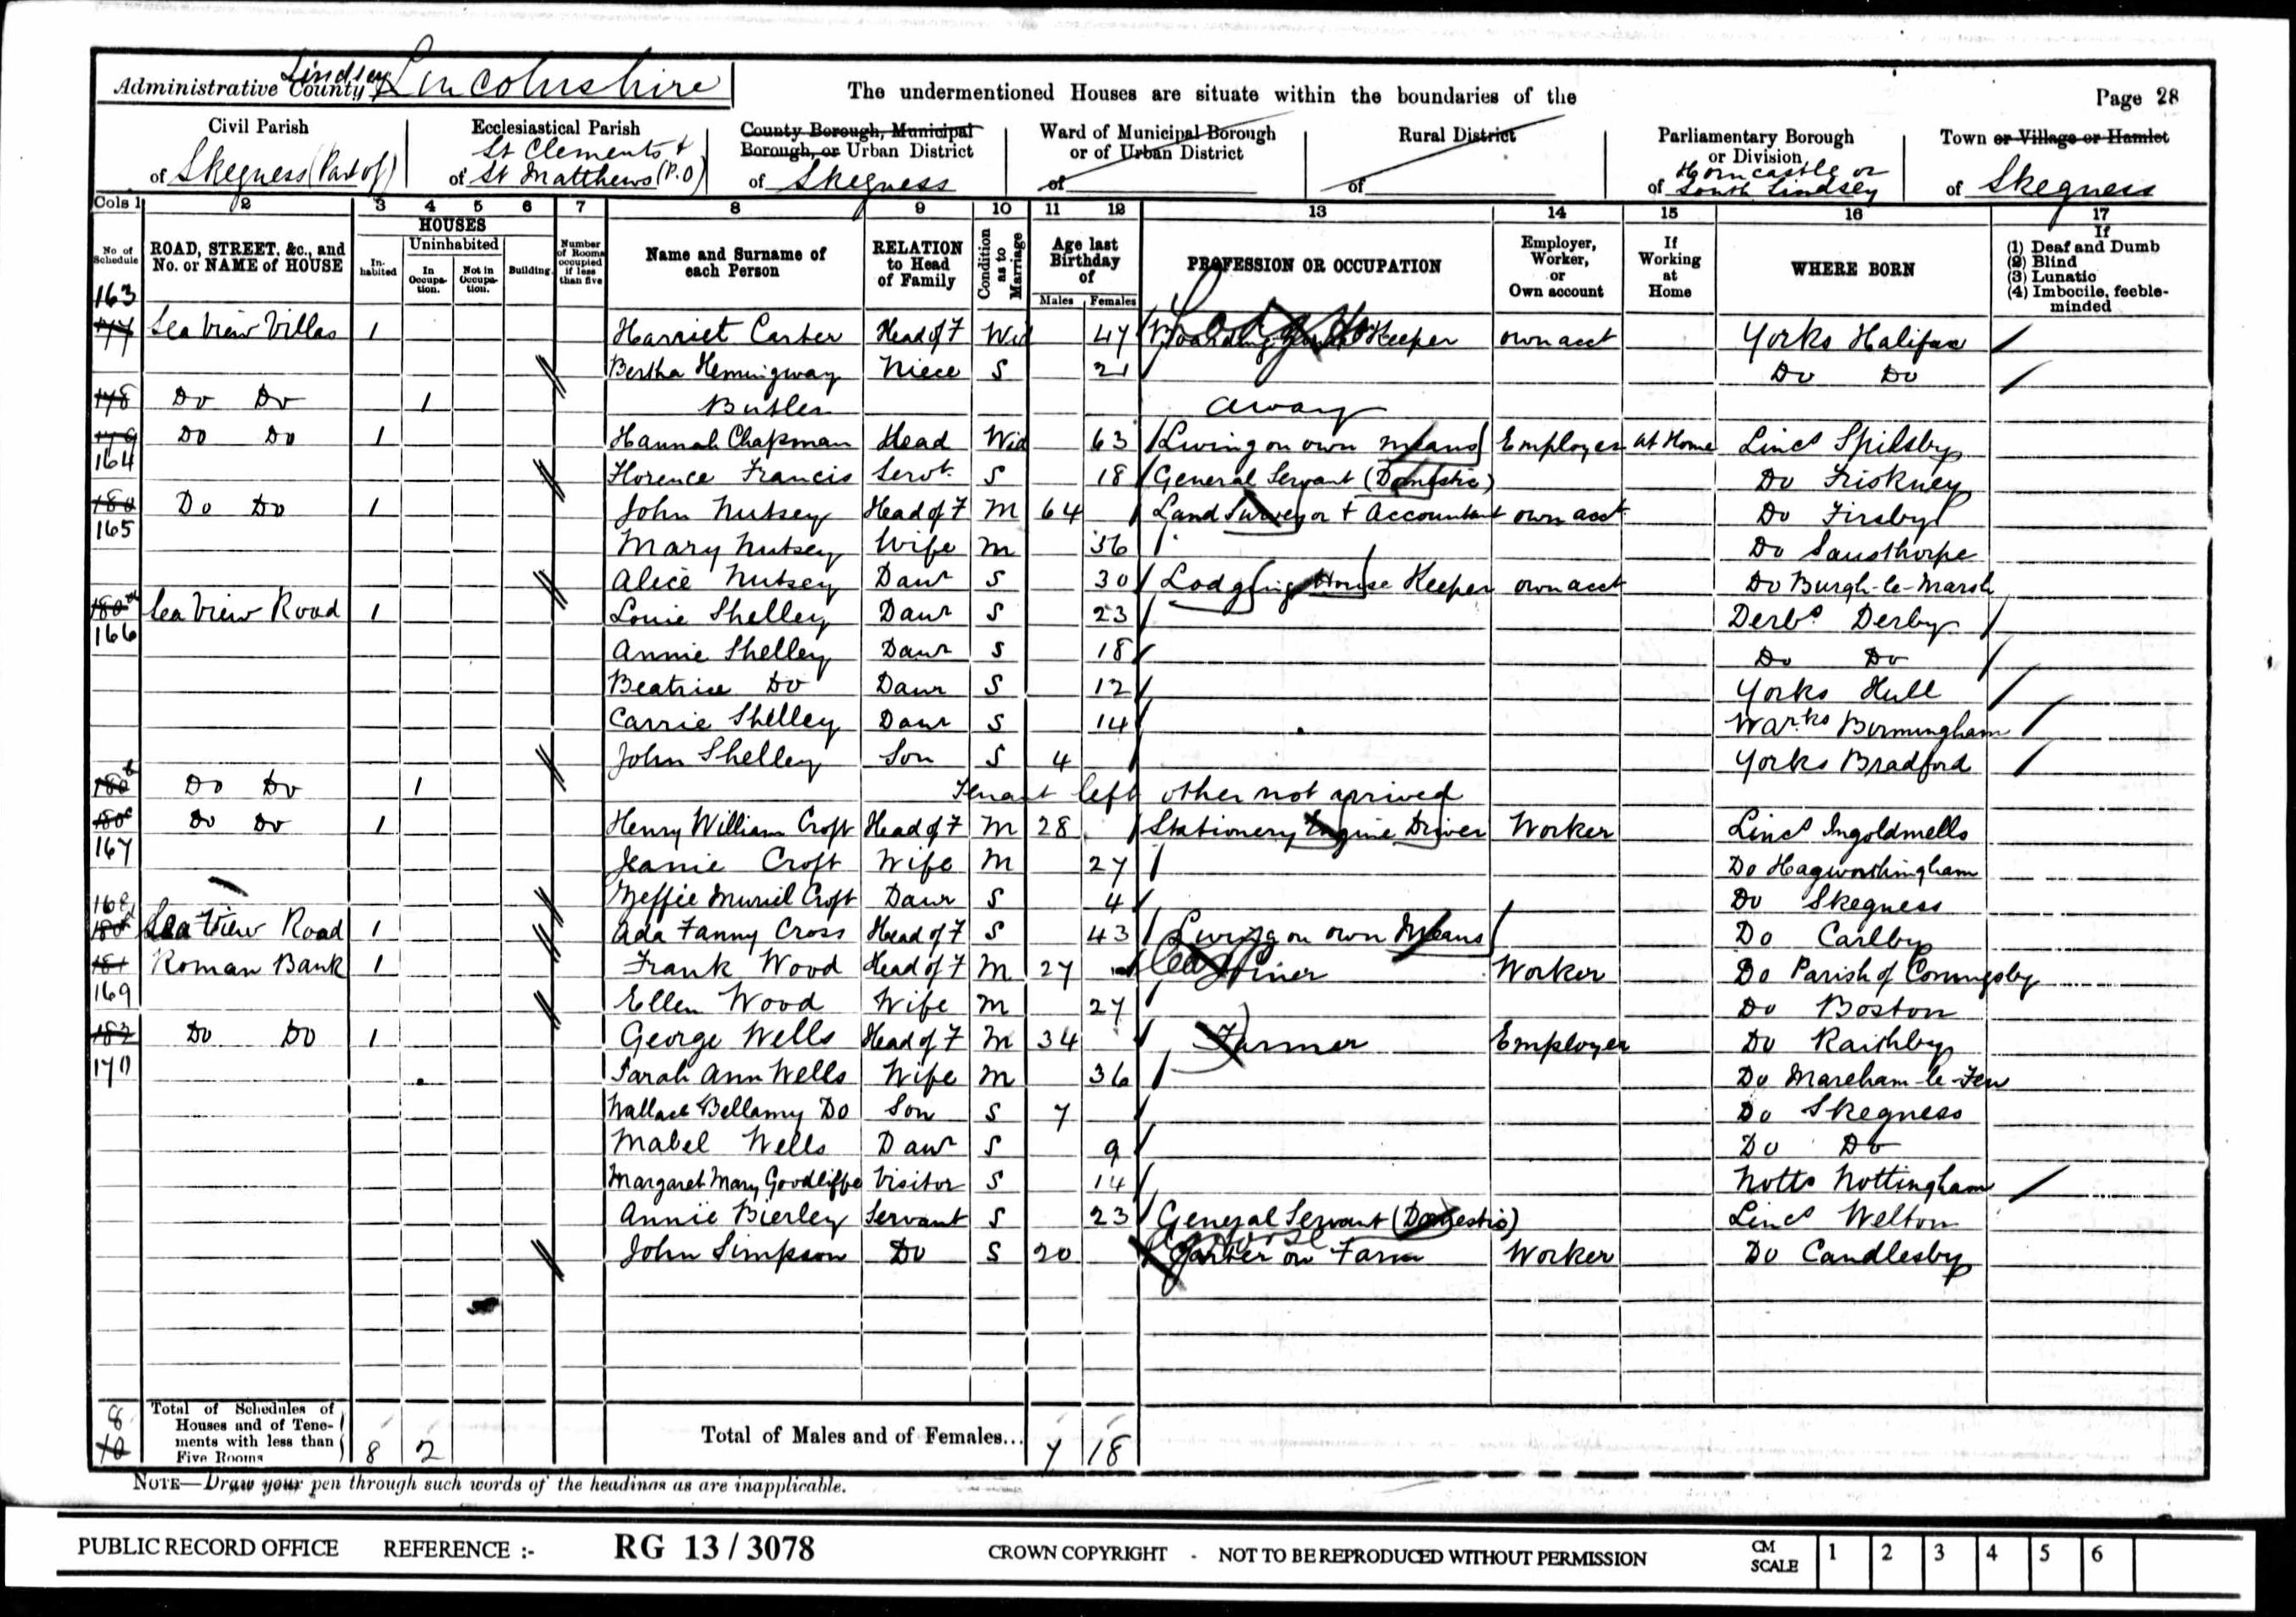 Administrative County Lindsey Lincolnshire The undermentioned Houses are situate within the boundaries of the Page 28
Civil Parish of Skegness (Part of)
Ecclesiastical Parish of St Clements & St Matthews (P.O)
County Borough, Municipal Borough, or Urban District of Skegness
Ward of Municipal Borough or of Urban District of
Rural District of
Parliamentary Borough or Division of Horncastle or South Lindsey
Town or Village or Hamlet of Skegness
Cols 1 2 3 4 5 6 7 8 9 10 11 12 13 14 15 16 17
No. of Schedule
ROAD, STREET, &c., and No. or NAME of HOUSE
HOUSES
In-habited
Uninhabited
In Occupa-tion.
Not in Occupa-tion.
Building
Number of Rooms occupied if less than five
Name and Surname of each Person
RELATION to Head of Family
Condition as to Marriage
Age last Birthday of
Males Females
PROFESSION OR OCCUPATION
Employer, Worker, or Own account
If Working at Home
WHERE BORN
If
(1) Deaf and Dumb
(2) Blind
(3) Lunatic
(4) Imbecile, feeble-minded
163
177 Sea View Villas 1 Harriet Carter Head of F Wid 47 Boarding House Keeper own acct Yorks Halifax
Bertha Hemingway Niece S 21 Do Do
178 Do Do 1 Butler away
179 Do Do 1 Hannah Chapman Head Wid 63 Living on own means Employer at Home Lincs Spilsby
164 Florence Francis Servt S 18 General Servant (Domestic) Do Friskney
180 Do Do 1 John Nutsey Head of F M 64 Land Surveyor & Accountant own acct Do Firsby
165 Mary Nutsey Wife M 56 Do Sausthorpe
Alice Nutsey Daur S 30 Lodging House Keeper own acct Do Burgh-le-Marsh
180a Sea View Road 1 Louie Shelley Daur S 23 Derbs Derby
166 Annie Shelley Daur S 18 Do Do
Beatrice Do Daur S 12 Yorks Hull
Carrie Shelley Daur S 14 Warks Birmingham
John Shelley Son S 4 Yorks Bradford
180b Do Do 1 Tenant left other not arrived
180c Do Do 1 Henry William Croft Head of F M 28 Stationery Engine Driver Worker Lincs Ingoldmells
167 Jeanie Croft Wife M 27 Do Hagworthingham
Zeffie Muriel Croft Daur S 4 Do Skegness
168
180d Sea View Road 1 Ada Fanny Cross Head of F S 43 Living on own Means Do Carlby
181 Roman Bank 1 Frank Wood Head of F M 27 Worker Do Parish of Coningsby
169 Ellen Wood Wife M 27 Do Boston
182 Do Do 1 George Wells Head of F M 34 Farmer Employer Do Raithby
170 Sarah Ann Wells Wife M 36 Do Mareham-le-Fen
Wallace Bellamy Do Son S 7 Do Skegness
Mabel Wells Daur S 9 Do Do
Margaret Mary Goodliffe Visitor S 14 Notts Nottingham
Annie Bierley Servant S 23 General Servant (Domestic) Lincs Welton
John Simpson Do S 20 on Farm Worker Do Candlesby
8
10 Total of Schedules of Houses and of Tene-ments with less than Five Rooms 8 2 Total of Males and of Females... 7 18
NOTE—Draw your pen through such words of the headings as are inapplicable.
PUBLIC RECORD OFFICE REFERENCE :- RG 13 / 3078 CROWN COPYRIGHT - NOT TO BE REPRODUCED WITHOUT PERMISSION CM SCALE 1 2 3 4 5 6